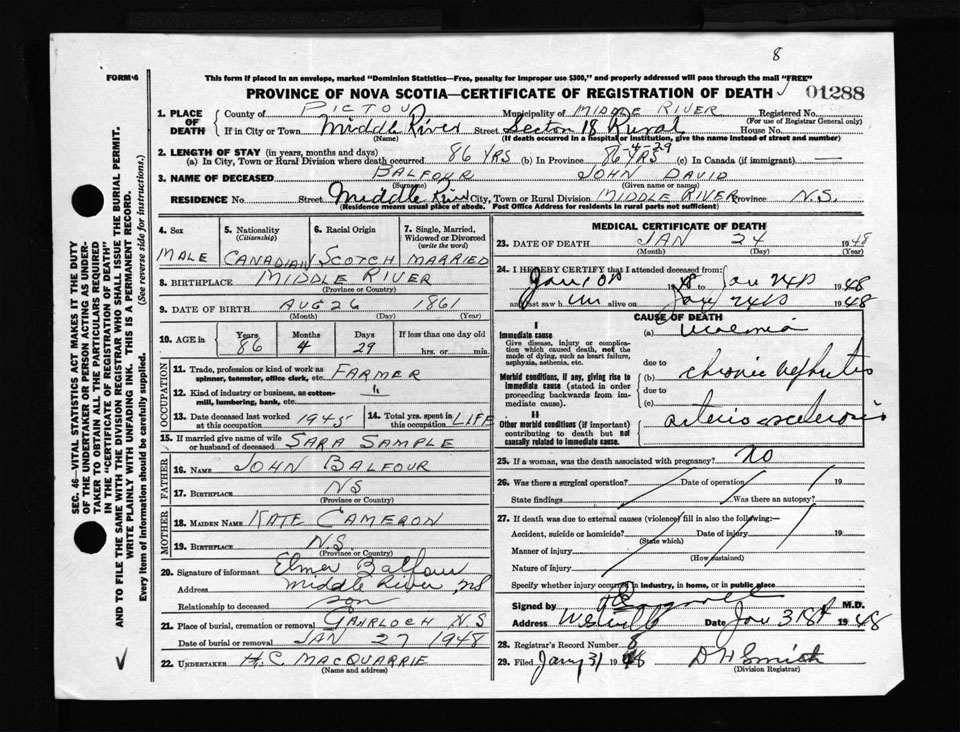 8
FORM 6
This form if placed in an envelope, marked "Dominion Statistics—Free, penalty for improper use $300," and properly addressed will pass through the mail "FREE"
PROVINCE OF NOVA SCOTIA—CERTIFICATE OF REGISTRATION OF DEATH 01288
1. PLACE OF DEATH
County of PICTOU Municipality of MIDDLE RIVER Registered No.
(For use of Registrar General only)
If in City or Town Middle River Street Section 18 Rural House No.
(Name) (If death occurred in a hospital or institution, give the name instead of street and number)
2. LENGTH OF STAY (in years, months and days) 86-4-29
(a) In City, Town or Rural Division where death occurred 86 YRS (b) In Province 86 YRS (c) In Canada (if immigrant) —
3. NAME OF DECEASED BALFOUR JOHN DAVID
(Surname) (Given name or names)
RESIDENCE No. Street Middle River City, Town or Rural Division MIDDLE RIVER Province N.S.
(Residence means usual place of abode. Post Office Address for residents in rural parts not sufficient)
4. Sex
MALE
5. Nationality (Citizenship)
CANADIAN
6. Racial Origin
SCOTCH
7. Single, Married, Widowed or Divorced (write the word)
MARRIED
8. BIRTHPLACE MIDDLE RIVER
(Province or Country)
9. DATE OF BIRTH AUG 26 1861
(Month) (Day) (Year)
10. AGE in Years Months Days If less than one day old
86 4 29 hrs. or min.
OCCUPATION
11. Trade, profession or kind of work as spinner, teamster, office clerk, etc. FARMER
12. Kind of industry or business, as cotton-mill, lumbering, bank, etc. "
13. Date deceased last worked at this occupation 1945
14. Total yrs. spent in this occupation LIFE
15. If married give name of wife or husband of deceased SARA SAMPLE
FATHER
16. NAME JOHN BALFOUR
17. BIRTHPLACE NS
(Province or Country)
MOTHER
18. MAIDEN NAME KATE CAMERON
19. BIRTHPLACE N.S.
(Province or Country)
20. Signature of informant Elmer Balfour
Address Middle River, NS
Relationship to deceased son
21. Place of burial, cremation or removal GAHRLOCH N.S
Date of burial or removal JAN 27 1948
22. UNDERTAKER H.C. MACQUARRIE
(Name and address)
MEDICAL CERTIFICATE OF DEATH
23. DATE OF DEATH JAN 24 1948
(Month) (Day) (Year)
24. I HEREBY CERTIFY that I attended deceased from:
1948 to Jan 24th 1948
and last saw him alive on Jan 24th 1948
CAUSE OF DEATH
I
Immediate cause (a) Uraemia
Give disease, injury or complication which caused death, not the mode of dying, such as heart failure, asphyxia, asthenia, etc.
due to
Morbid conditions, if any, giving rise to immediate cause (stated in order proceeding backwards from immediate cause). (b) chronic nephritis
due to
(c)
II
Other morbid conditions (if important) contributing to death but not causally related to immediate cause. arteriosclerosis
25. If a woman, was the death associated with pregnancy? NO
26. Was there a surgical operation? Date of operation 19
State findings Was there an autopsy?
27. If death was due to external causes (violence) fill in also the following:—
Accident, suicide or homicide? Date of injury 19
(State which)
Manner of injury
(How sustained)
Nature of injury
Specify whether injury occurred in industry, in home, or in public place
Signed by M.D.
Address Westville Date Jan 31st 1948
28. Registrar's Record No. 8
29. Filed Jany 31 1948 D H Smith
(Division Registrar)
SEC. 46—VITAL STATISTICS ACT MAKES IT THE DUTY
OF THE UNDERTAKER OR PERSON ACTING AS UNDER-
TAKER TO OBTAIN ALL THE PARTICULARS REQUIRED
IN THE "CERTIFICATE OF REGISTRATION OF DEATH"
AND TO FILE THE SAME WITH THE DIVISION REGISTRAR WHO SHALL ISSUE THE BURIAL PERMIT.
WRITE PLAINLY WITH UNFADING INK. THIS IS A PERMANENT RECORD.
Every item of information should be carefully supplied. (See reverse side for instructions.)